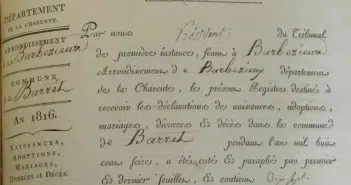 DÉPARTEMENT
DE LA CHARENTE.
ARRONDISSEMENT
de Barbezieux
COMMUNE
de Barret
AN 1816.
NAISSANCES,
ADOPTIONS,
MARIAGES,
DIVORCES ET DÉCÈS.
Par nous Président du Tribunal
de première instance, séant à Barbezieux
Arrondissement de Barbezieux Département
de la Charente, le présent Registre destiné à
recevoir les déclarations de naissances, adoptions,
mariages, divorces & décès dans la commune
de Barret pendant l'an mil huit
cent seize, a été coté & paraphé par premier
& dernier feuillet, & contient dix-sept